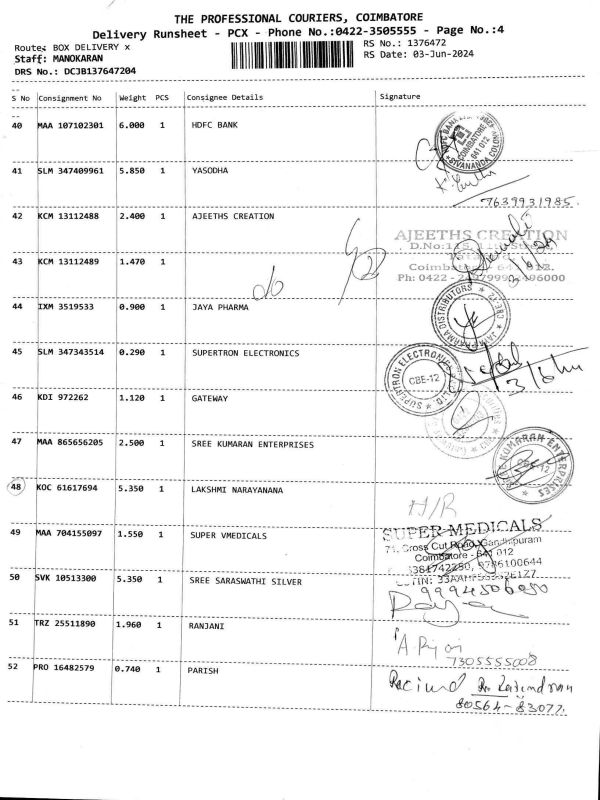 THE PROFESSIONAL COURIERS, COIMBATORE
Delivery Runsheet - PCX - Phone No.:0422-3505555 - Page No.:4
Route: BOX DELIVERY x
RS No.: 1376472
Staff: MANOKARAN
RS Date: 03-Jun-2024
DRS No.: DCJB137647204
S No Consignment No Weight PCS Consignee Details Signature
40 MAA 107102301 6.000 1 HDFC BANK
HDFC BANK COIMBATORE 641 012 SIVANANDA COLONY
41 SLM 347409961 5.850 1 YASODHA
7639931985
42 KCM 13112488 2.400 1 AJEETHS CREATION
AJEETHS CREATION
43 KCM 13112489 1.470 1 do
44 IXM 3519533 0.900 1 JAYA PHARMA
45 SLM 347343514 0.290 1 SUPERTRON ELECTRONICS
CBE-12
46 KDI 972262 1.120 1 GATEWAY
47 MAA 865656205 2.500 1 SREE KUMARAN ENTERPRISES
48 KOC 61617694 5.350 1 LAKSHMI NARAYANANA
H/R
49 MAA 704155097 1.550 1 SUPER VMEDICALS
SUPER MEDICALS
71, Cross Cut Road, Gandhipuram
Coimbatore - 641 012
50 SVK 10513300 5.350 1 SREE SARASWATHI SILVER
51 TRZ 25511890 1.960 1 RANJANI
7305555008
52 PRO 16482579 0.740 1 PARISH
80564-83077